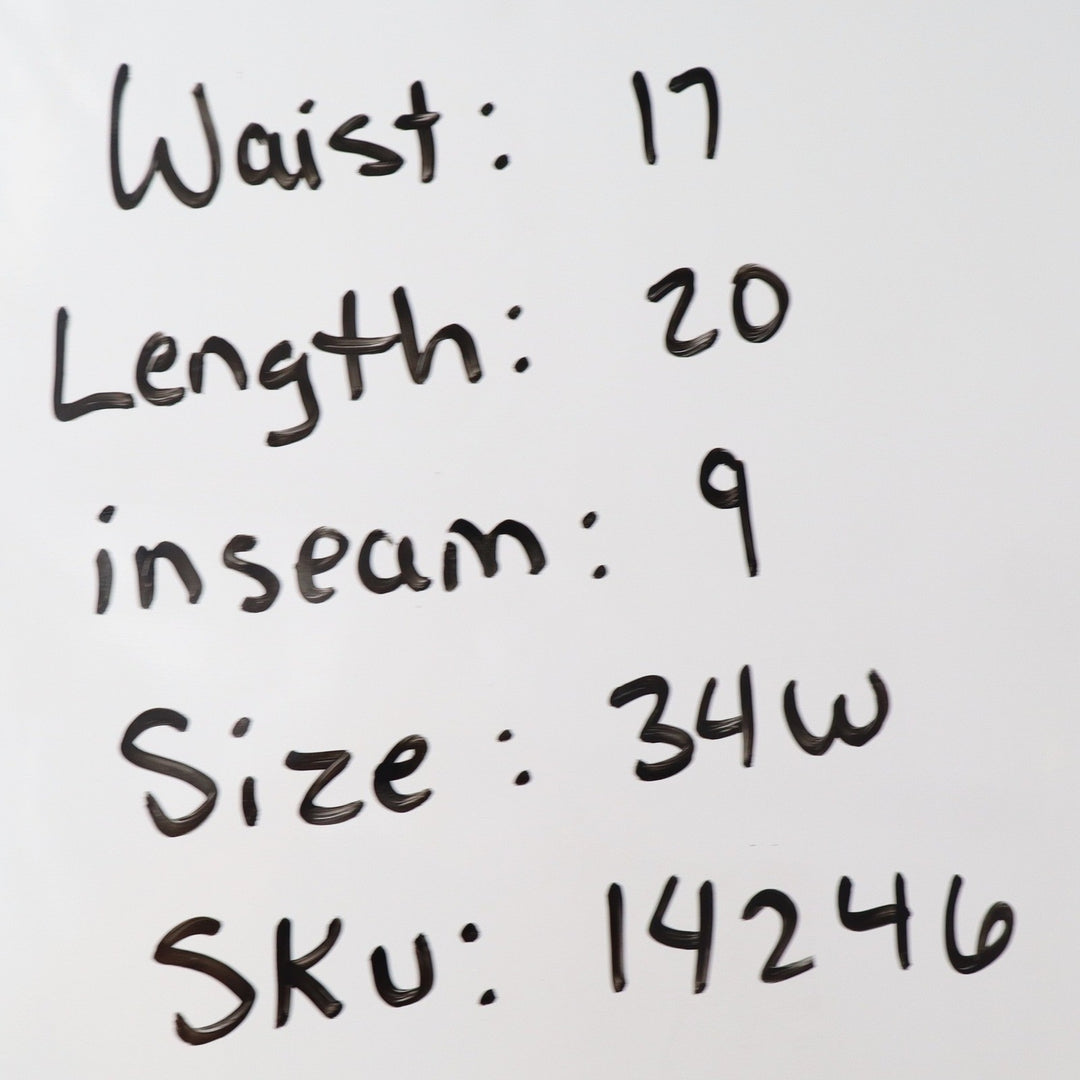 Waist: 17
Length: 20
inseam: 9
Size: 34W
SKU: 14246